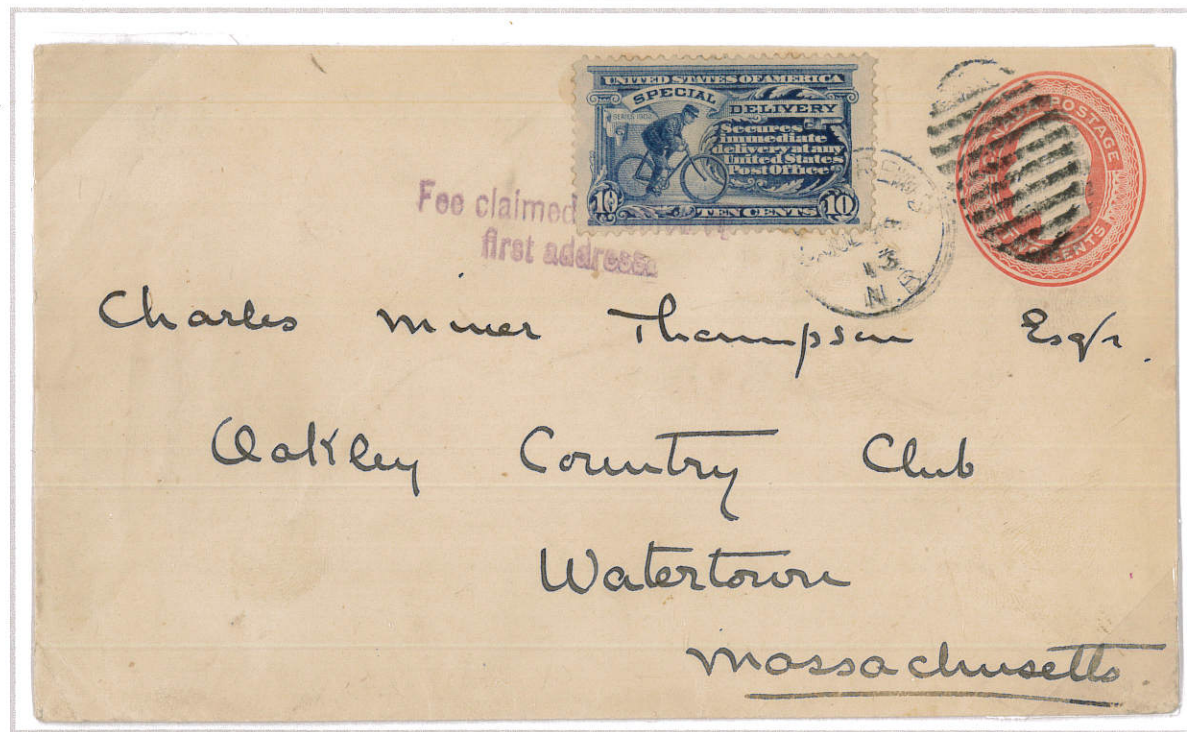 UNITED STATES OF AMERICA
SPECIAL DELIVERY
SERIES 1902
Secures
immediate
delivery at any
United States
Post Office
10 TEN CENTS 10
POSTAGE
CENTS
Fee claimed
first address.
Charles Miner Thompson Esqr.
Oakley Country Club
Watertown
Massachusetts